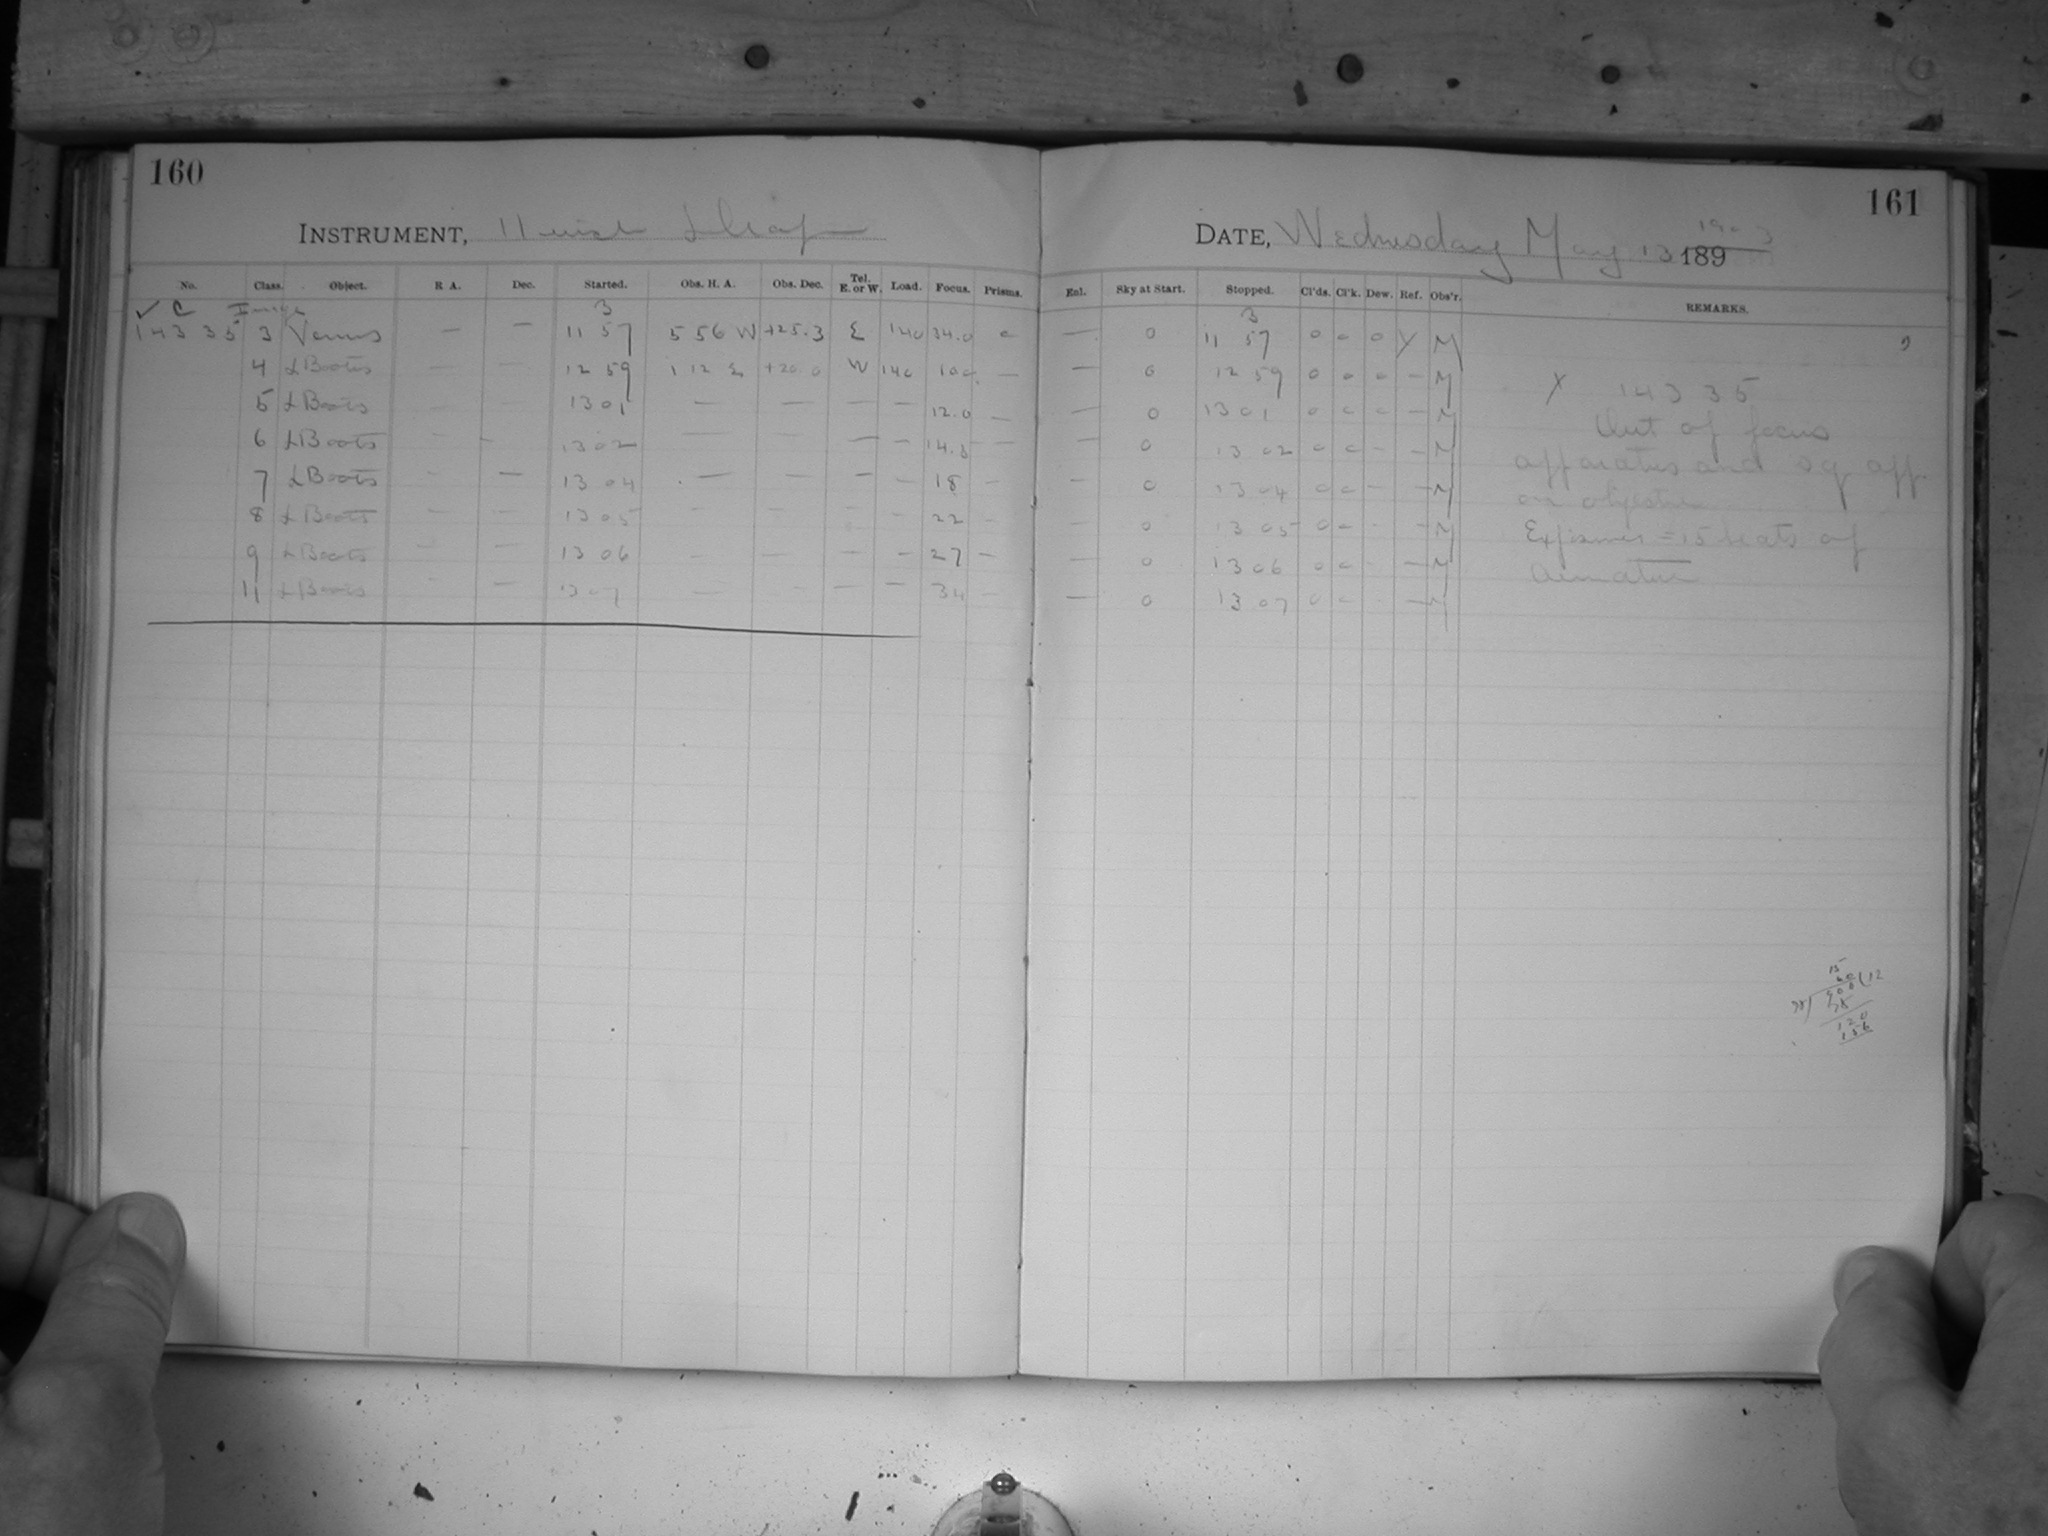 160
INSTRUMENT, 11 inch Draper
No. Class. Object. R A. Dec. Started. Obs. H. A. Obs. Dec. Tel. E. or W. Load. Focus. Prisms.
✓ C Image 3
14335 3 Venus — — 11 57 5 56 W +25.3 E 140 34.0 0
4 α Bootis — — 12 59 1 12 E +20.0 W 140 —
5 α Bootis — — 13 01 — — — — 12.0 —
6 α Bootis — — 13 02 — — — — 14.5 —
7 α Bootis — — 13 04 — — — — 18 —
8 α Bootis — — 13 05 — — — — 22 —
9 α Bootis — — 13 06 — — — — 27 —
11 α Bootis — — 13 07 — — — — 34 —
161
DATE, Wednesday May 13 189 1903
Enl. Sky at Start. Stopped. Cl'ds. Cl'k. Dew. Ref. Obs'r. REMARKS.
3
— 0 11 57 0 0 0 Y M
— 0 12 59 0 0 0 — M
— 0 13 01 0 0 0 — M
— 0 13 02 0 0 — — M
— 0 13 04 0 0 — — M
— 0 13 05 0 0 — — M
— 0 13 06 0 0 — — M
— 0 13 07 0 0 — — M
X 14335
Out of focus
apparatus and sq app
on objective
Exposures = 15 beats of
armature
15
60
38) 500 (12
38
120